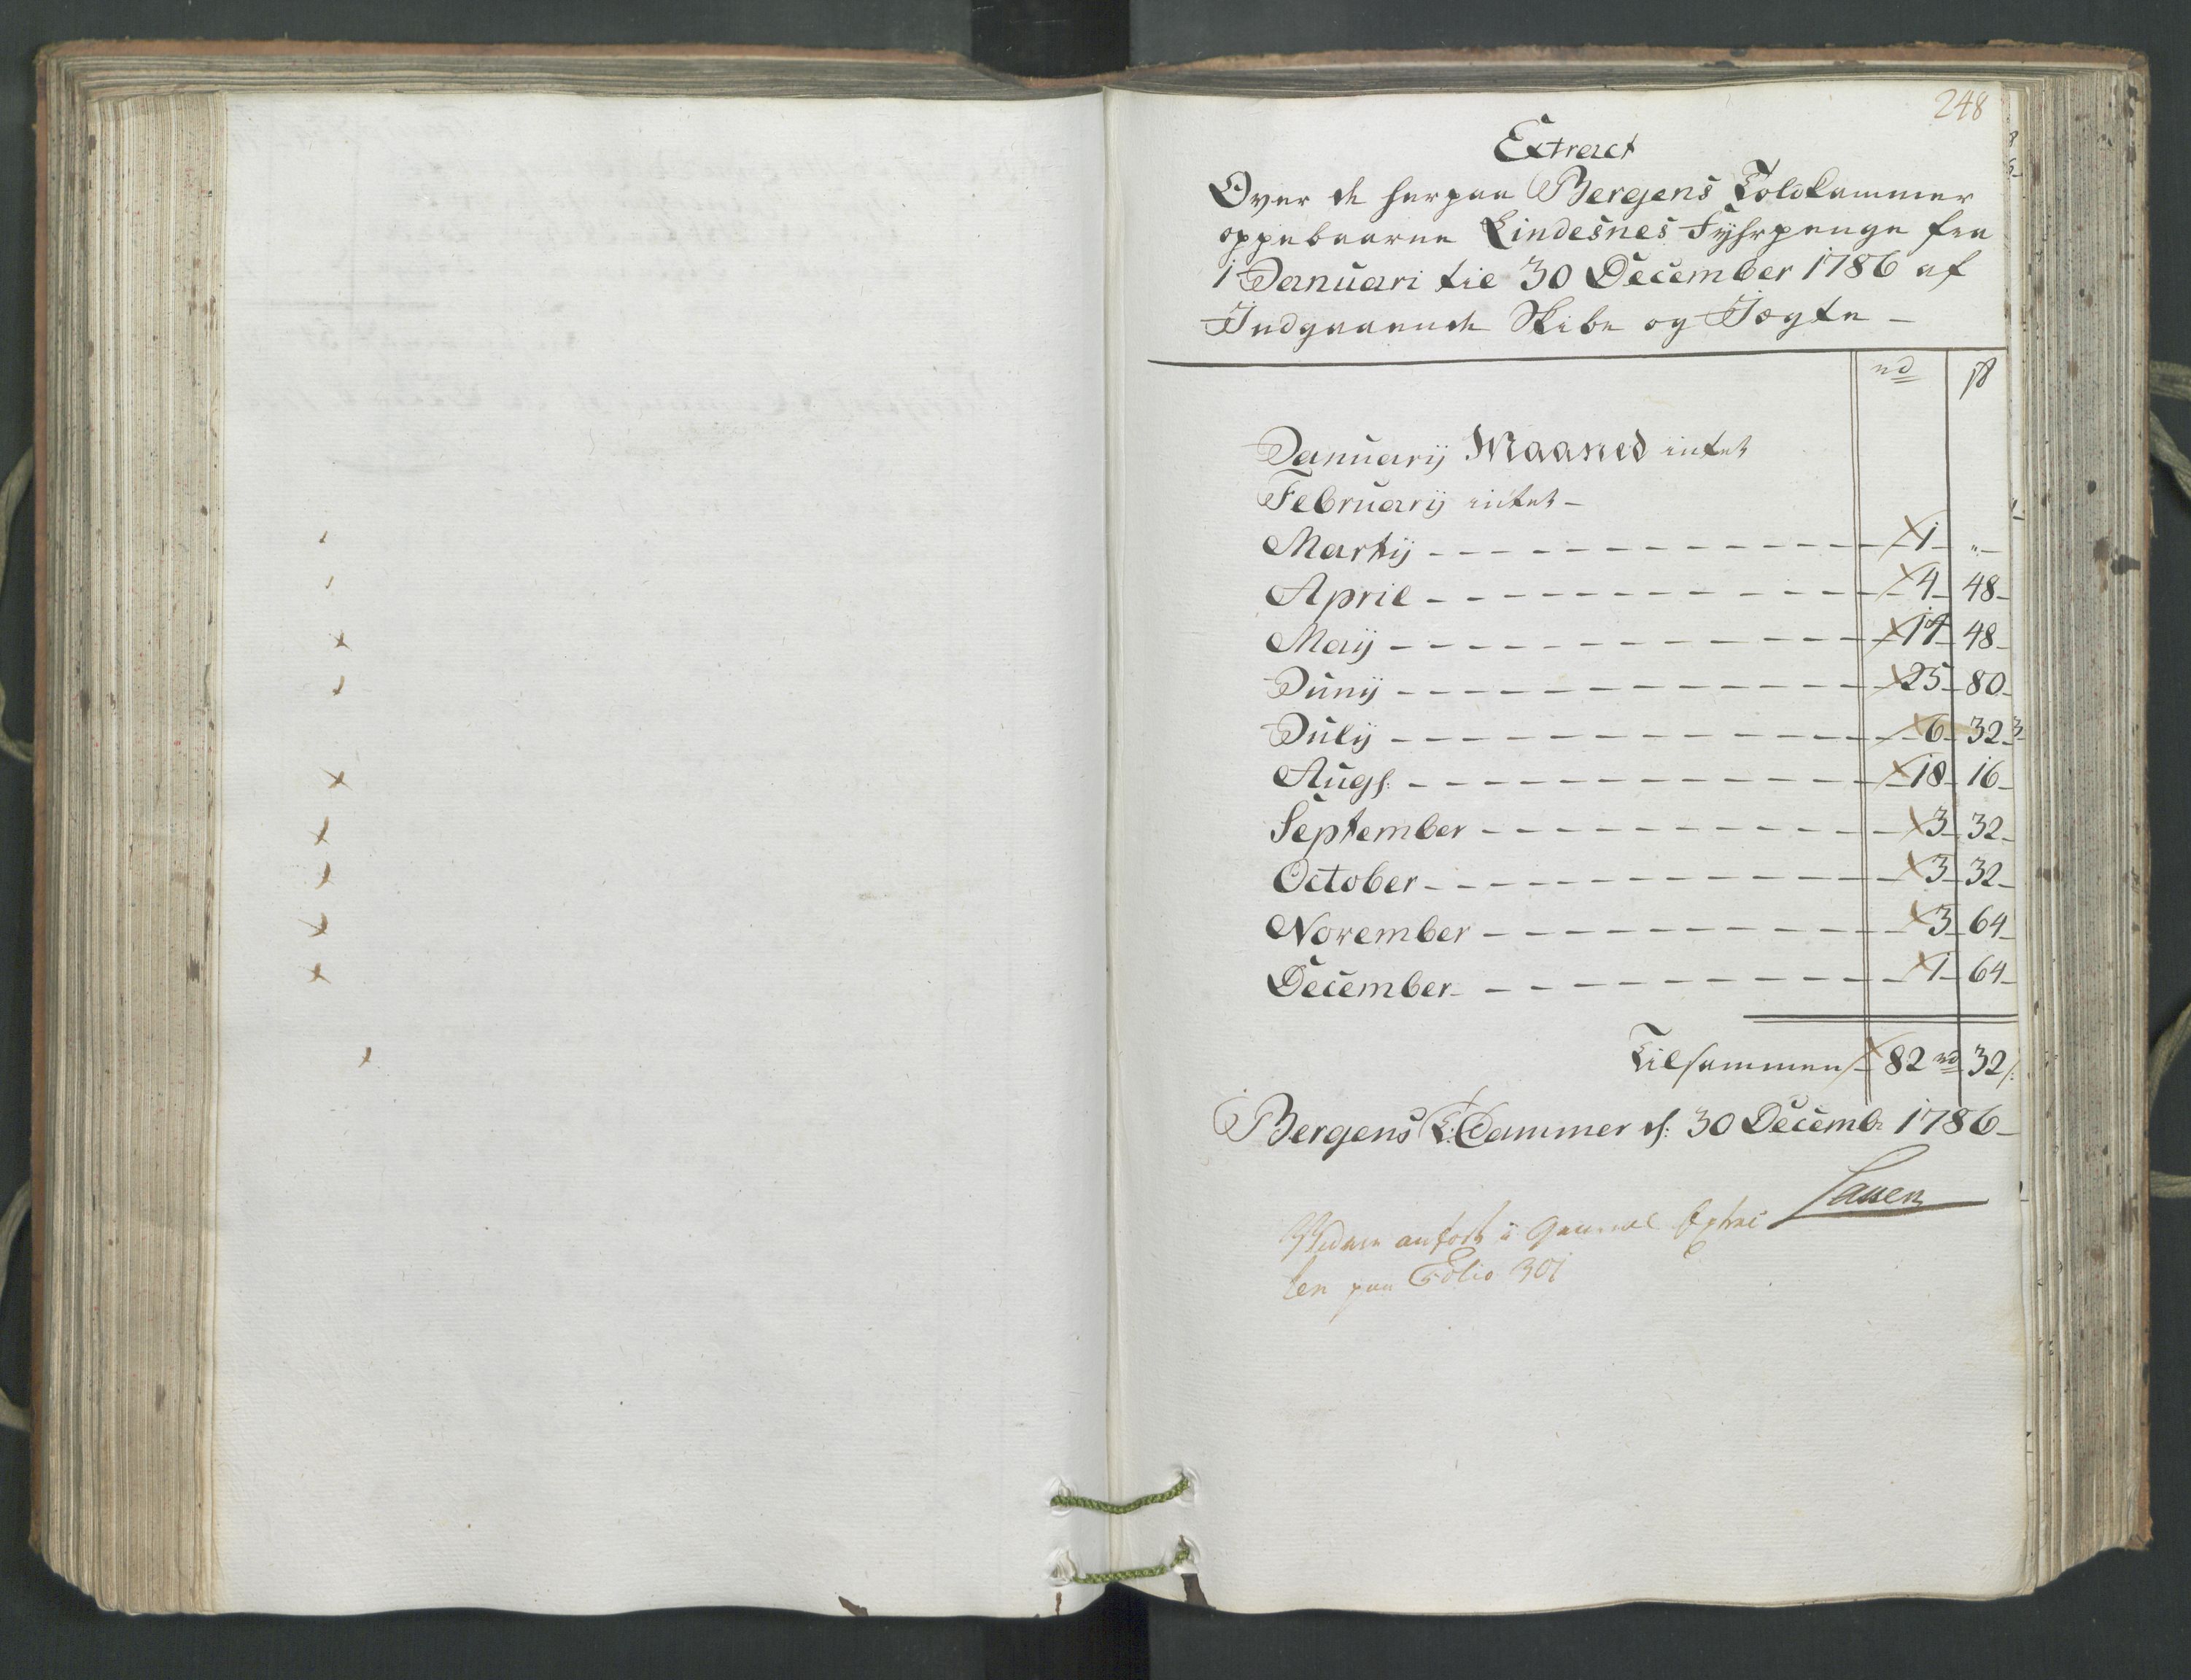 248
Extract
Over de herpaa Bergens Toldkammer
oppebaarne Lindesnes Fyhrpenge fra
1 Januari til 30 December 1786 af
Indgaaende Skibe og Jægte –
rd ß
Januarij Maaned intet
Februarij intet –
Martij – 1 – " –
April – 4 – 48 –
Maij – 14 – 48 –
Junij – 25 – 80 –
Julij – 6 – 32 –
Augs: – 18 – 16 –
September – 3 – 32 –
October – 3 – 32 –
November – 3 – 64 –
December – 1 – 64 –
Tilsammen 82 rd 32 /:
Bergens T: Cammer d: 30 Decembr 1786 –
anført i General Extrac
ten paa Folio 301